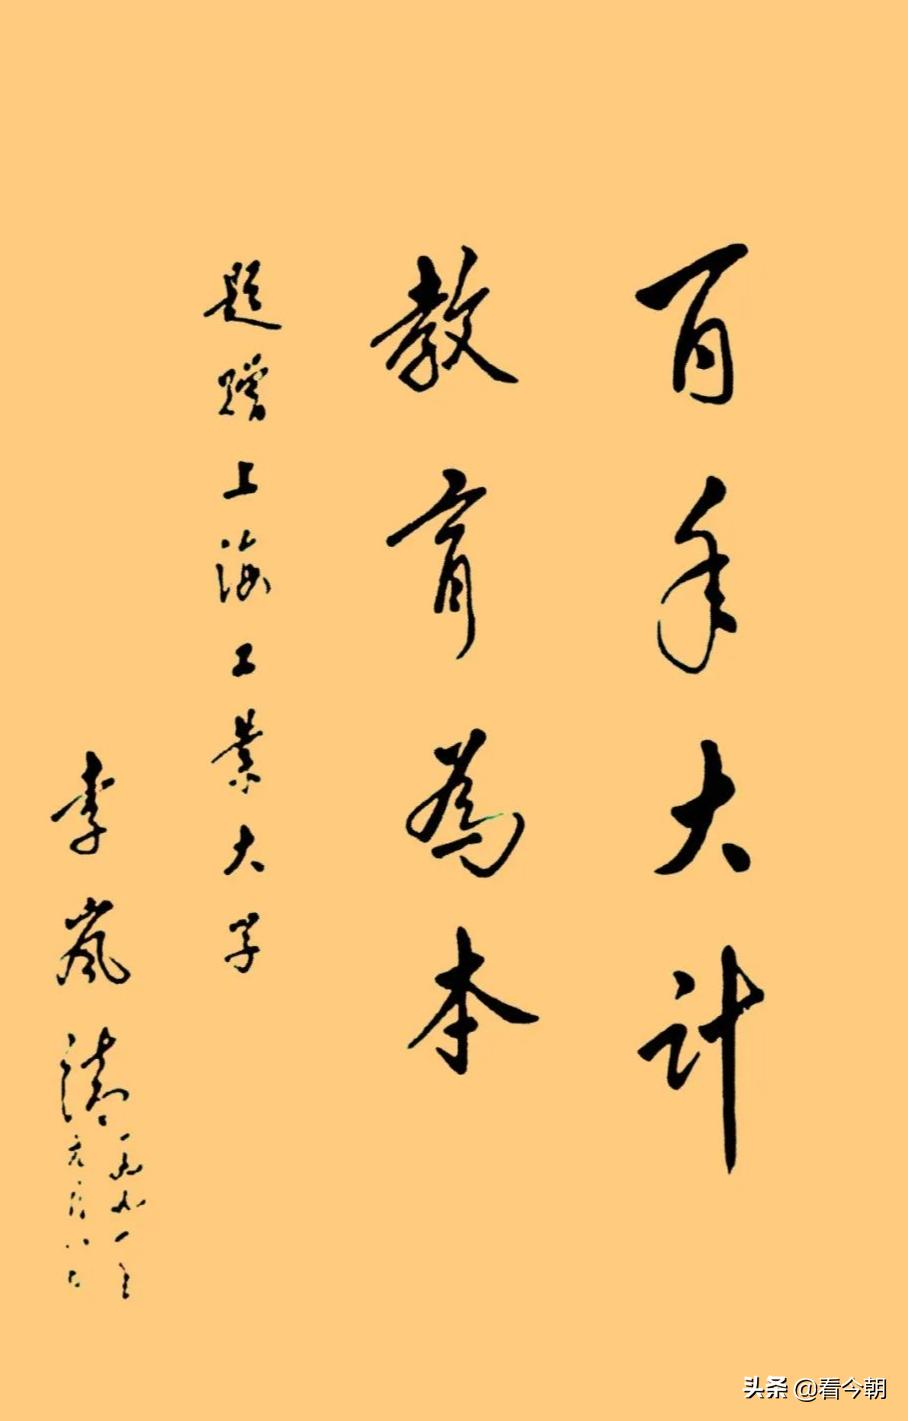 百年大计
教育为本
题赠上海工业大学
李岚清
一九九一年
元月八日
头条 @看今朝